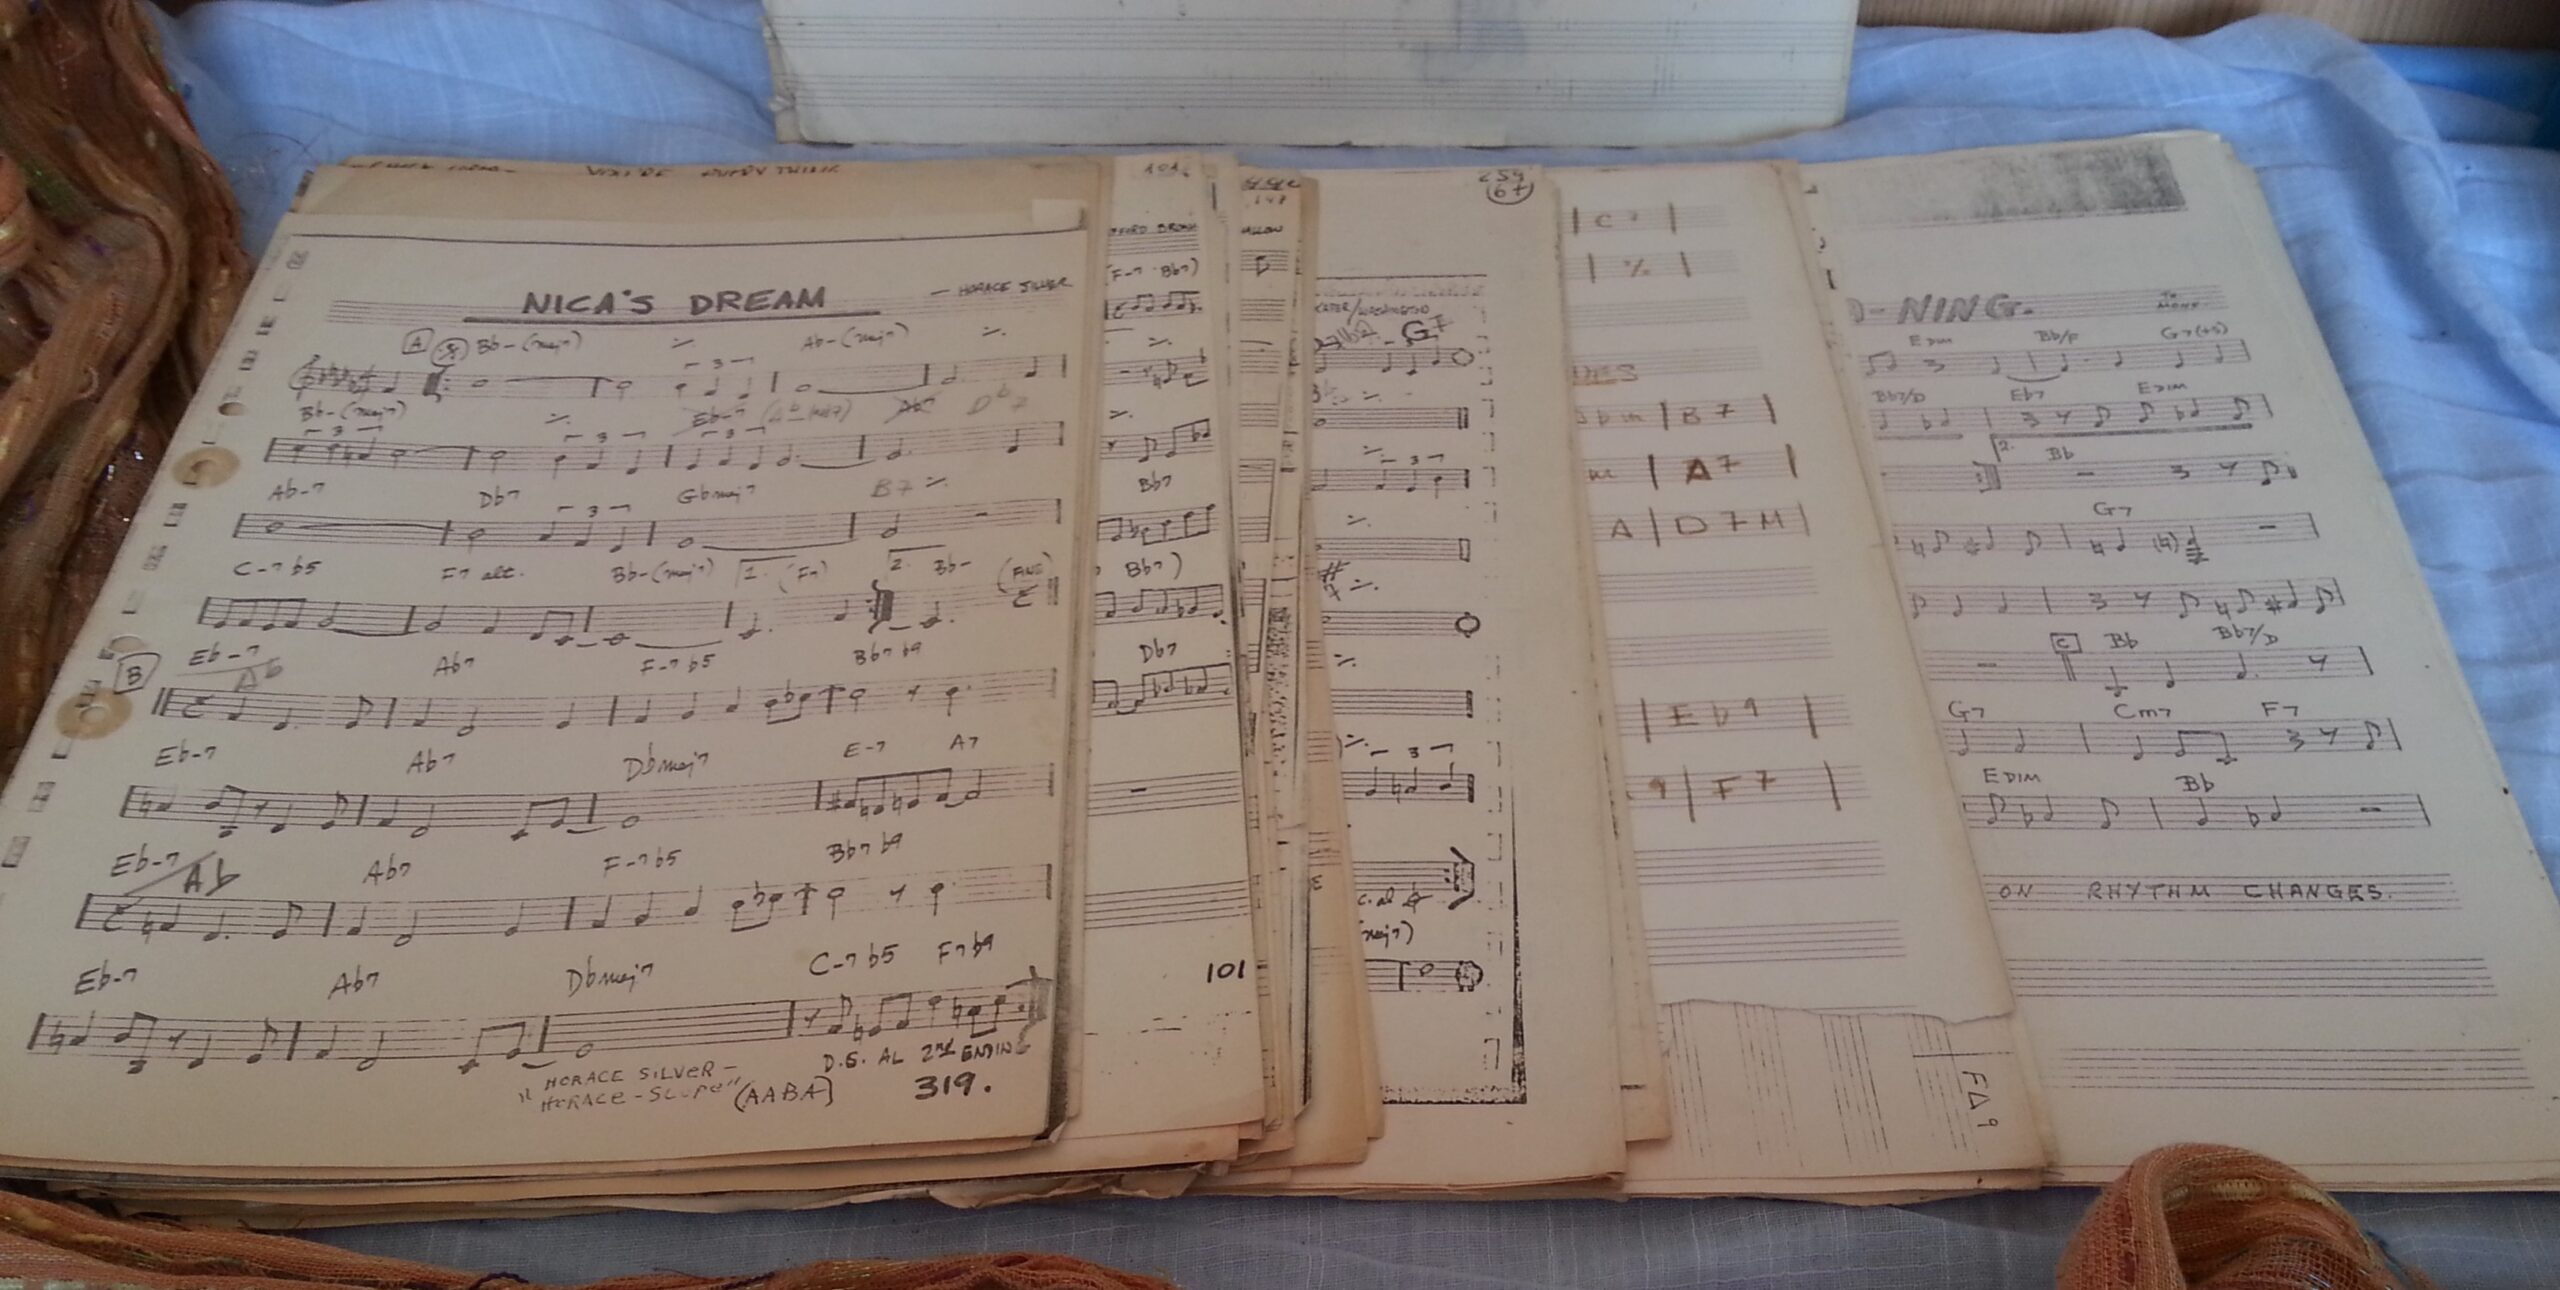 NICA'S DREAM
— HORACE SILVER
A Bb-(maj7) ٪ Ab-(maj7) ٪
3
Bb-(maj7) ٪ Eb-7 Ab7 Db7
3 3 3
Ab-7 Db7 Gbmaj7 B7 ٪
3
C-7b5 F7 alt. Bb-(maj7) 1. (F7) 2. Bb- (FINE)
B Eb-7 Ab Ab7 F-7b5 Bb7b9
Eb-7 Ab7 Dbmaj7 E-7 A7
Eb-7 Ab Ab7 F-7b5 Bb7b9
Eb-7 Ab7 Dbmaj7 C-7b5 F7b9
D.S. AL 2nd ENDIN
"HORACE SILVER –
HORACE-SCOPE" (AABA)
319.
(F-7 Bb7)
٪
٪
Bb7
Bb7)
Db7
101
259
67
/WASHINGTON
G7
٪
3
٪
٪
٪
3
c. al
maj7)
C7
٪
DES
B7
m A7
A D7M
Eb9
9 F7
FΔ9
D-NING.
MONK
Edim Bb/F G7(+5)
Bb7/D Eb7 EDIM
2. Bb
G7
C Bb Bb7/D
G7 Cm7 F7
EDIM Bb
ON RHYTHM CHANGES.